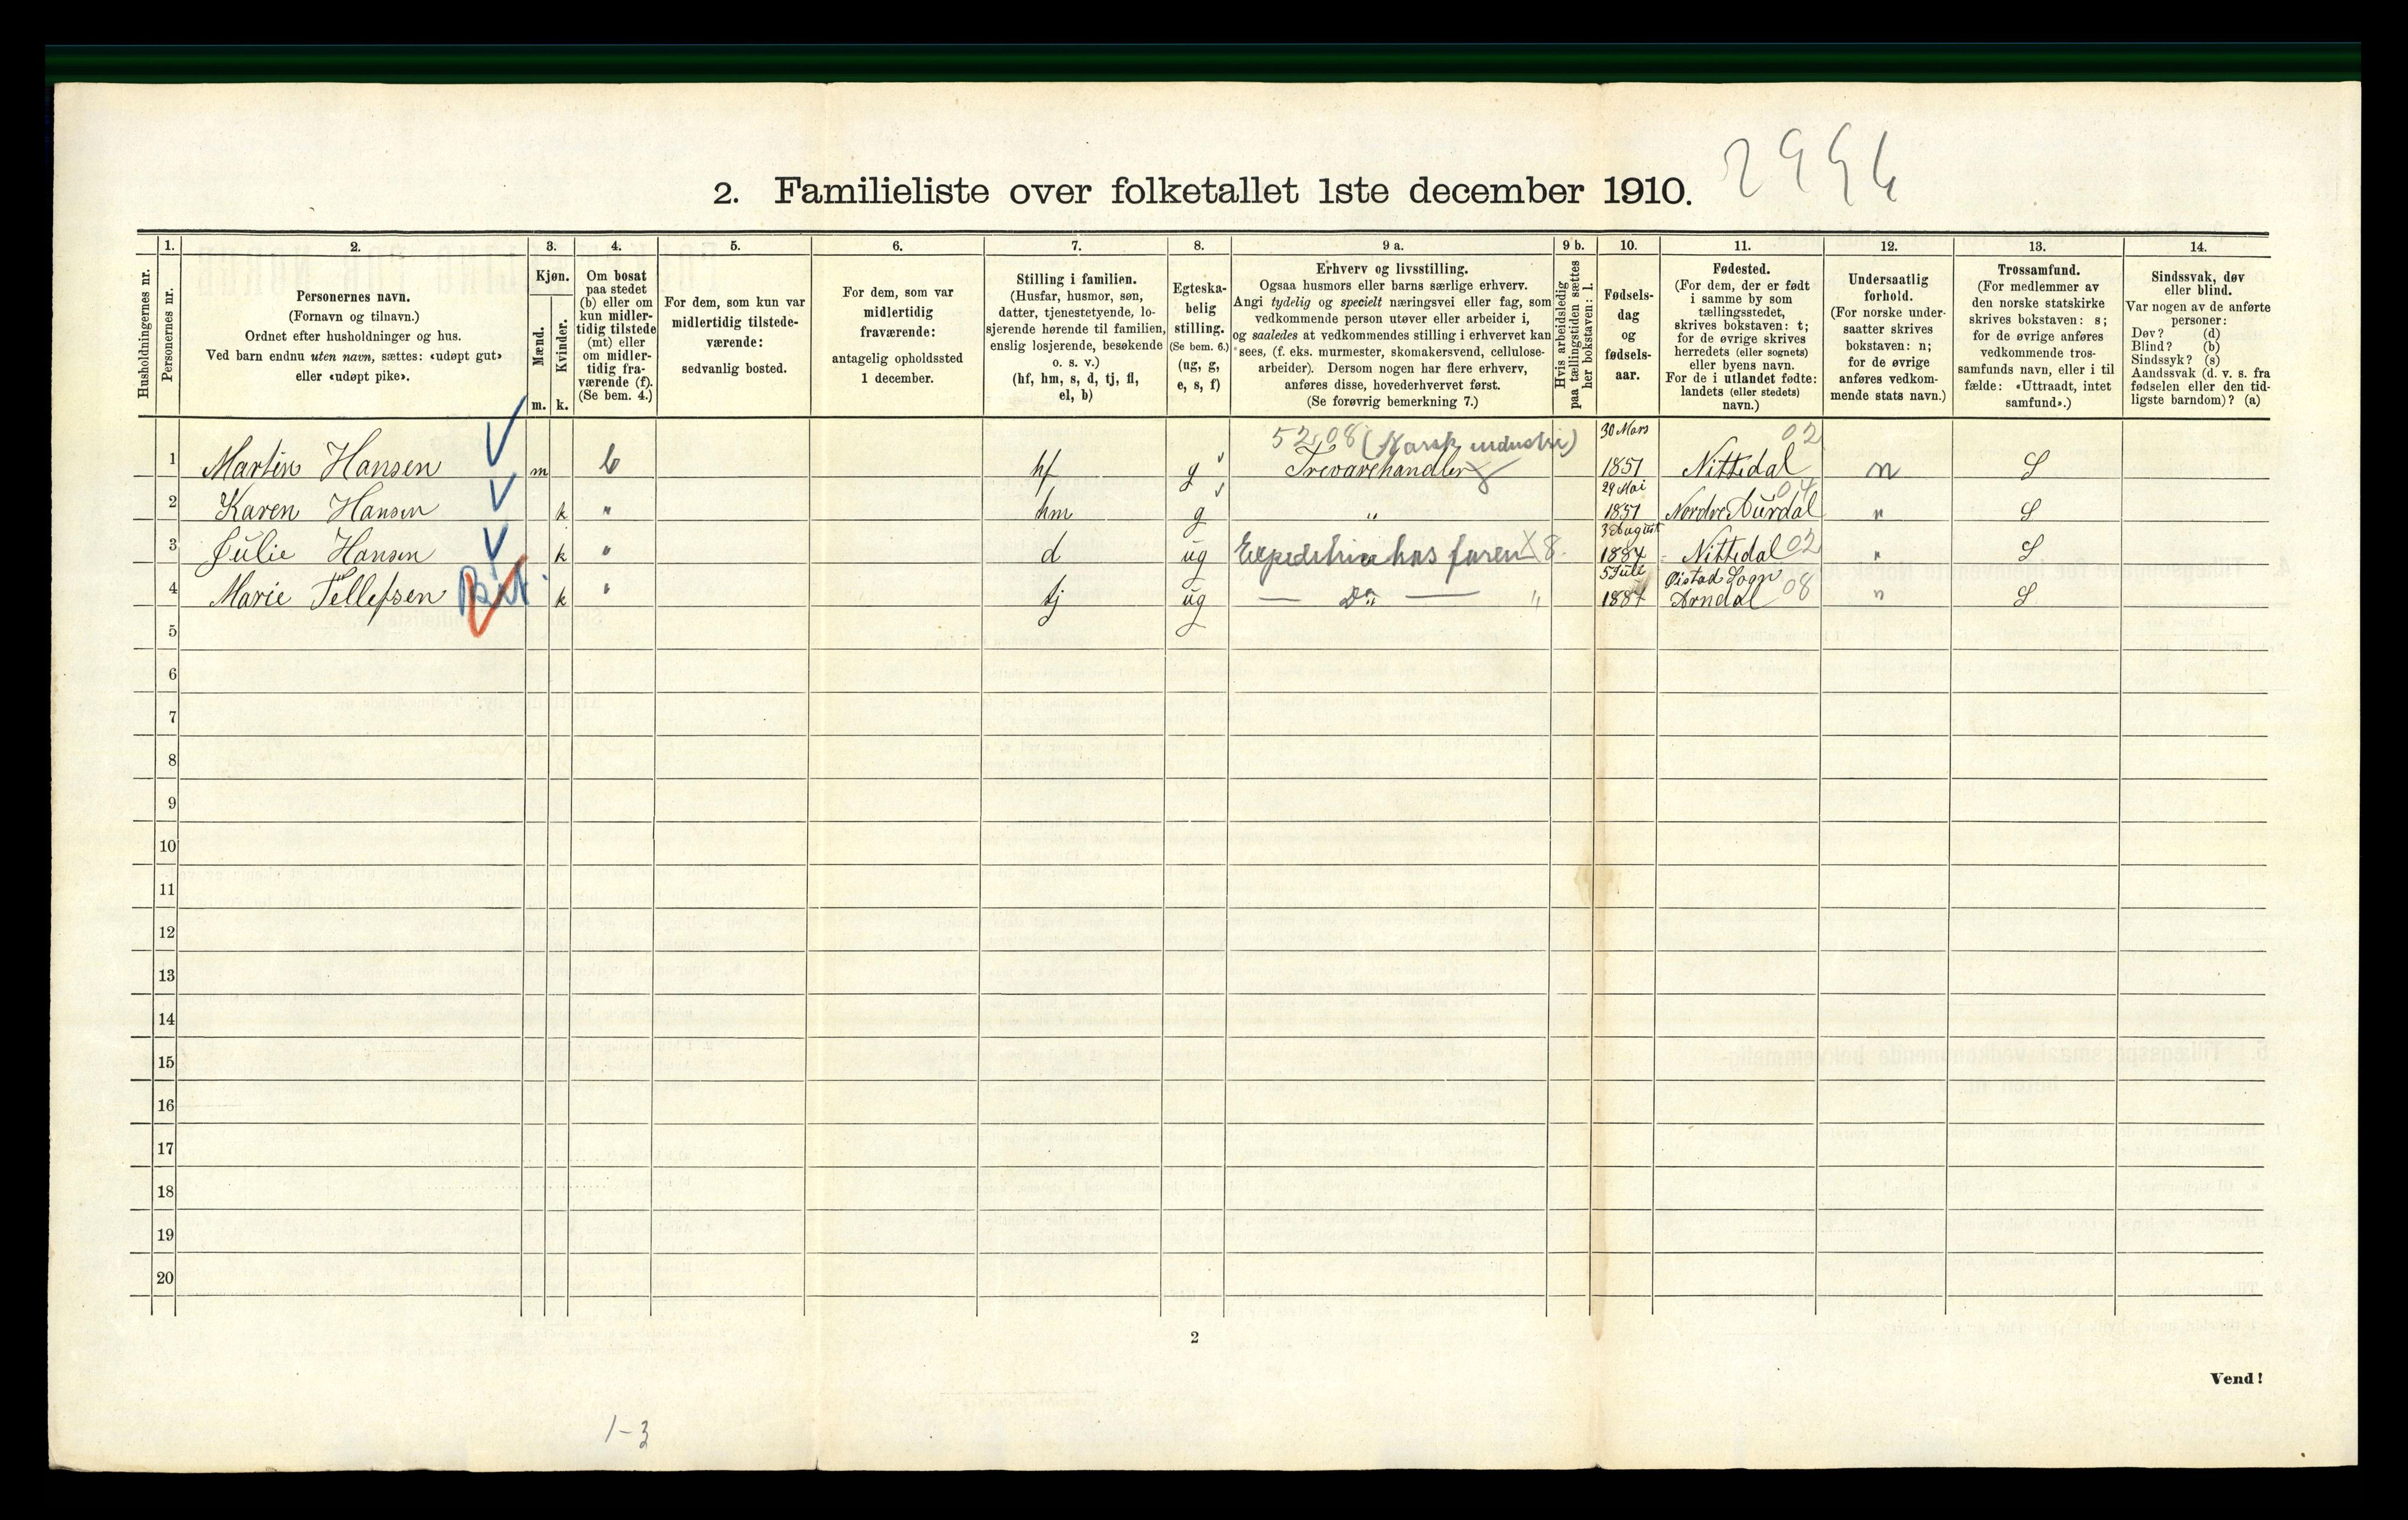 2. Familieliste over folketallet 1ste december 1910.
1. 2. 3. 4. 5. 6. 7. 8. 9 a. 9 b. 10. 11. 12. 13. 14.
Husholdningernes nr.
Personernes nr.
Personernes navn.
(Fornavn og tilnavn.)
Ordnet efter husholdninger og hus.
Ved barn endnu uten navn, sættes: «udøpt gut»
eller «udøpt pike».
Kjøn.
Mænd.
Kvinder.
m. k.
Om bosat
paa stedet
(b) eller om
kun midler-
tidig tilstede
(mt) eller
om midler-
tidig fra-
værende (f).
(Se bem. 4.)
For dem, som kun var
midlertidig tilstede-
værende:
sedvanlig bosted.
For dem, som var
midlertidig
fraværende:
antagelig opholdssted
1 december.
Stilling i familien.
(Husfar, husmor, søn,
datter, tjenestetyende, lo-
sjerende hørende til familien,
enslig losjerende, besøkende
o. s. v.)
(hf, hm, s, d, tj, fl,
el, b)
Egteska-
belig
stilling.
(Se bem. 6.)
(ug, g,
e, s, f)
Erhverv og livsstilling.
Ogsaa husmors eller barns særlige erhverv.
Angi tydelig og specielt næringsvei eller fag, som
vedkommende person utøver eller arbeider i,
og saaledes at vedkommendes stilling i erhvervet kan
sees, (f. eks. murmester, skomakersvend, cellulose-
arbeider). Dersom nogen har flere erhverv,
anføres disse, hovederhvervet først.
(Se forøvrig bemerkning 7.)
Hvis arbeidsledig
paa tællingstiden sættes
her bokstaven: l.
Fødsels-
dag
og
fødsels-
aar.
Fødested.
(For dem, der er født
i samme by som
tællingsstedet,
skrives bokstaven: t;
for de øvrige skrives
herredets (eller sognets)
eller byens navn.
For de i utlandet fødte:
landets (eller stedets)
navn.)
Undersaatlig
forhold.
(For norske under-
saatter skrives
bokstaven: n;
for de øvrige
anføres vedkom-
mende stats navn.)
Trossamfund.
(For medlemmer av
den norske statskirke
skrives bokstaven: s;
for de øvrige anføres
vedkommende tros-
samfunds navn, eller i til
fælde: «Uttraadt, intet
samfund».)
Sindssvak, døv
eller blind.
Var nogen av de anførte
personer:
Døv? (d)
Blind? (b)
Sindssyk? (s)
Aandssvak (d. v. s. fra
fødselen eller den tid-
ligste barndom)? (a)
52,08 (Norsk industri) 30 Mars 02
1 Martin Hansen m b hf g Trevarehandler 1851 Nittedal n S
29 Mai 04
2 Karen Hansen k " hm g " 1851 Nordre Aurdal " S
3 August
3 Julie Hansen k " d ug hos faren X 8. 1884 Nittedal 02 " S
5 Juli Øistad Sogn
4 Marie Tellefsen k " tj ug — Do — " Arndal 08 " S
5
6
7
8
9
10
11
12
13
14
15
16
17
18
19
20
2
Vend!
1-3